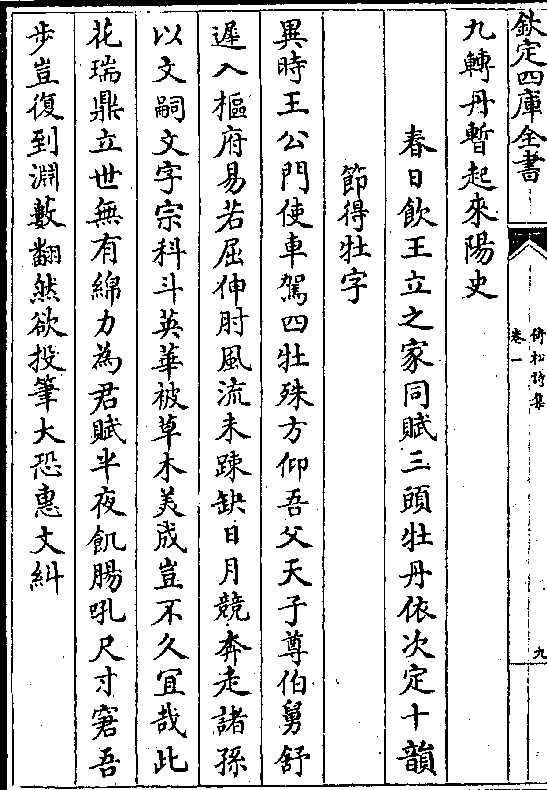 欽定四庫全書
倚松詩集
卷一
九
九轉丹暫起來陽史
春日飲王立之家同賦三頭牡丹依次定十韻
節得牡字
異時王公門使車駕四牡殊方仰吾父天子尊伯舅舒
遲入樞府易若屈伸肘風流未踈缺日月競奔走諸孫
以文嗣文字宗科斗英華被草木美成豈不久宜哉此
花瑞鼎立世無有綿力為君賦半夜飢腸吼尺寸窘吾
步豈復到淵藪翻然欲投筆大恐惠文糾